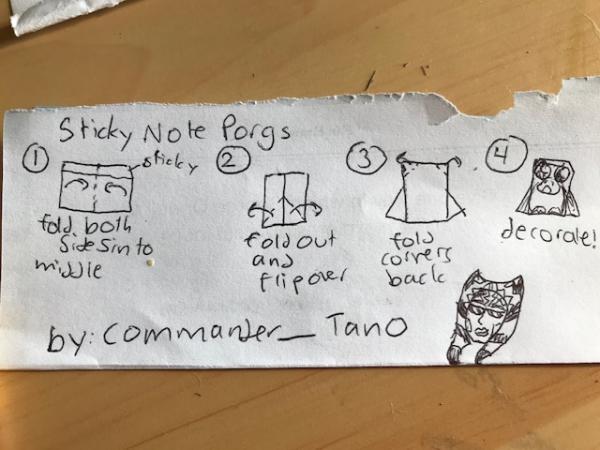 Sticky Note Porgs
1
sticky
fold both
sides in to
middle
2
fold out
and
flip over
3
fold
corners
back
4
decorate!
by: Commander_Tano